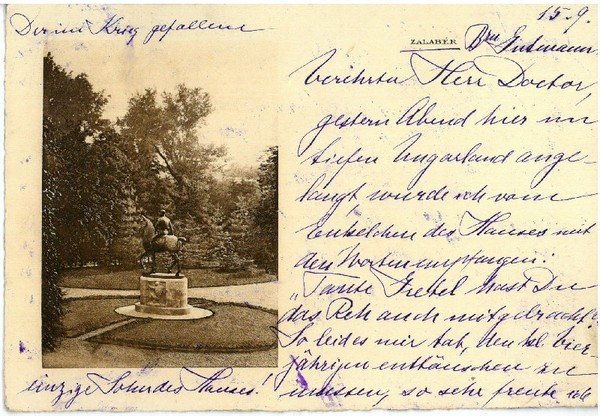 Der im Krieg gefallene
15.9.
ZALABÉR
Bar. Gutmann
Verehrter Herr Doctor,
gestern Abend hier im
tiefen Ungarland ange-
langt wurde ich vom
Enkelchen des Hauses mit
den Worten empfangen:
"Tante Gretel hast Du
das Reh auch mitgebracht?"
So leid es mir tat, den kl. vier-
jährigen enttäuschen zu
müssen, so sehr freute ich
einzige Sohn des Hauses!